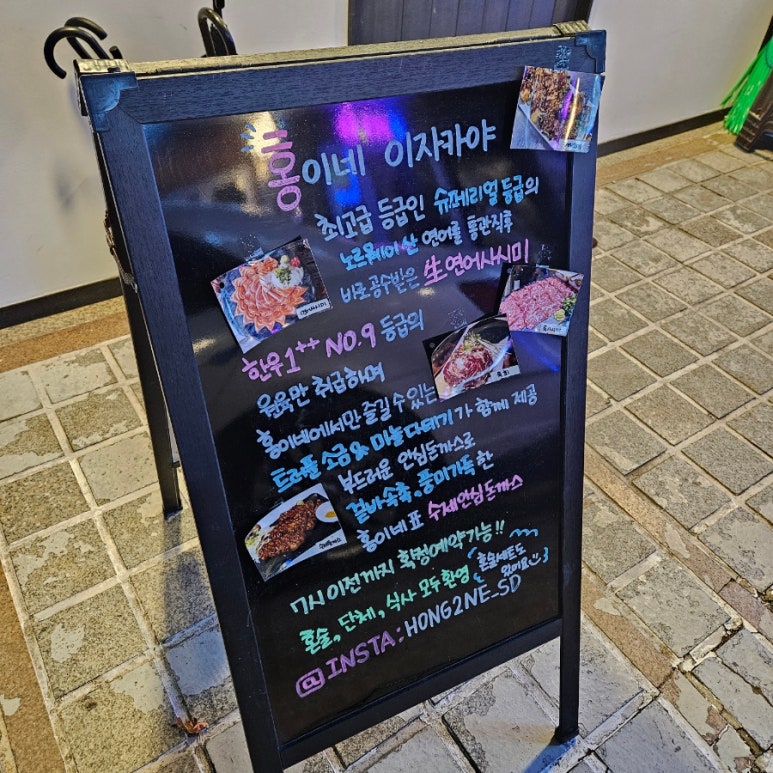 홍이네 이자카야
최고급 등급인 슈페리얼 등급의
노르웨이산 연어를 통관직후
바로 공수받은 生연어사시미
한우1++ NO.9 등급의
원육만 취급하며
홍이네에서만 즐길 수 있는
트러플 소금 & 마늘 다데기가 함께 제공
부드러운 안심돈까스로
겉바속촉, 풍미가득한
홍이네표 수제안심돈까스
7시 이전까지 확정예약가능!!
혼술, 단체, 식사 모두환영
혼술세트도
있어요
@INSTA: HONG2NE_SD